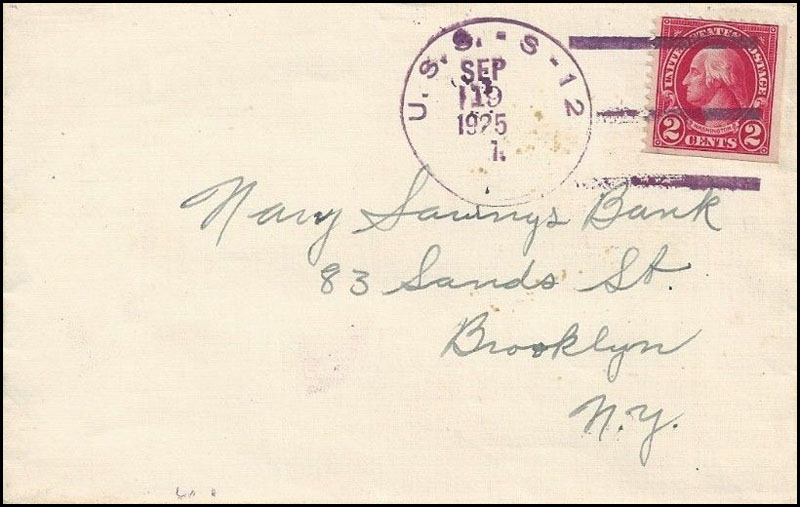 U.S.S. - S-12
SEP
19
1925
1.
UNITED STATES POSTAGE
WASHINGTON
2 CENTS 2
Navy Savings Bank
83 Sands St.
Brooklyn
N.Y.